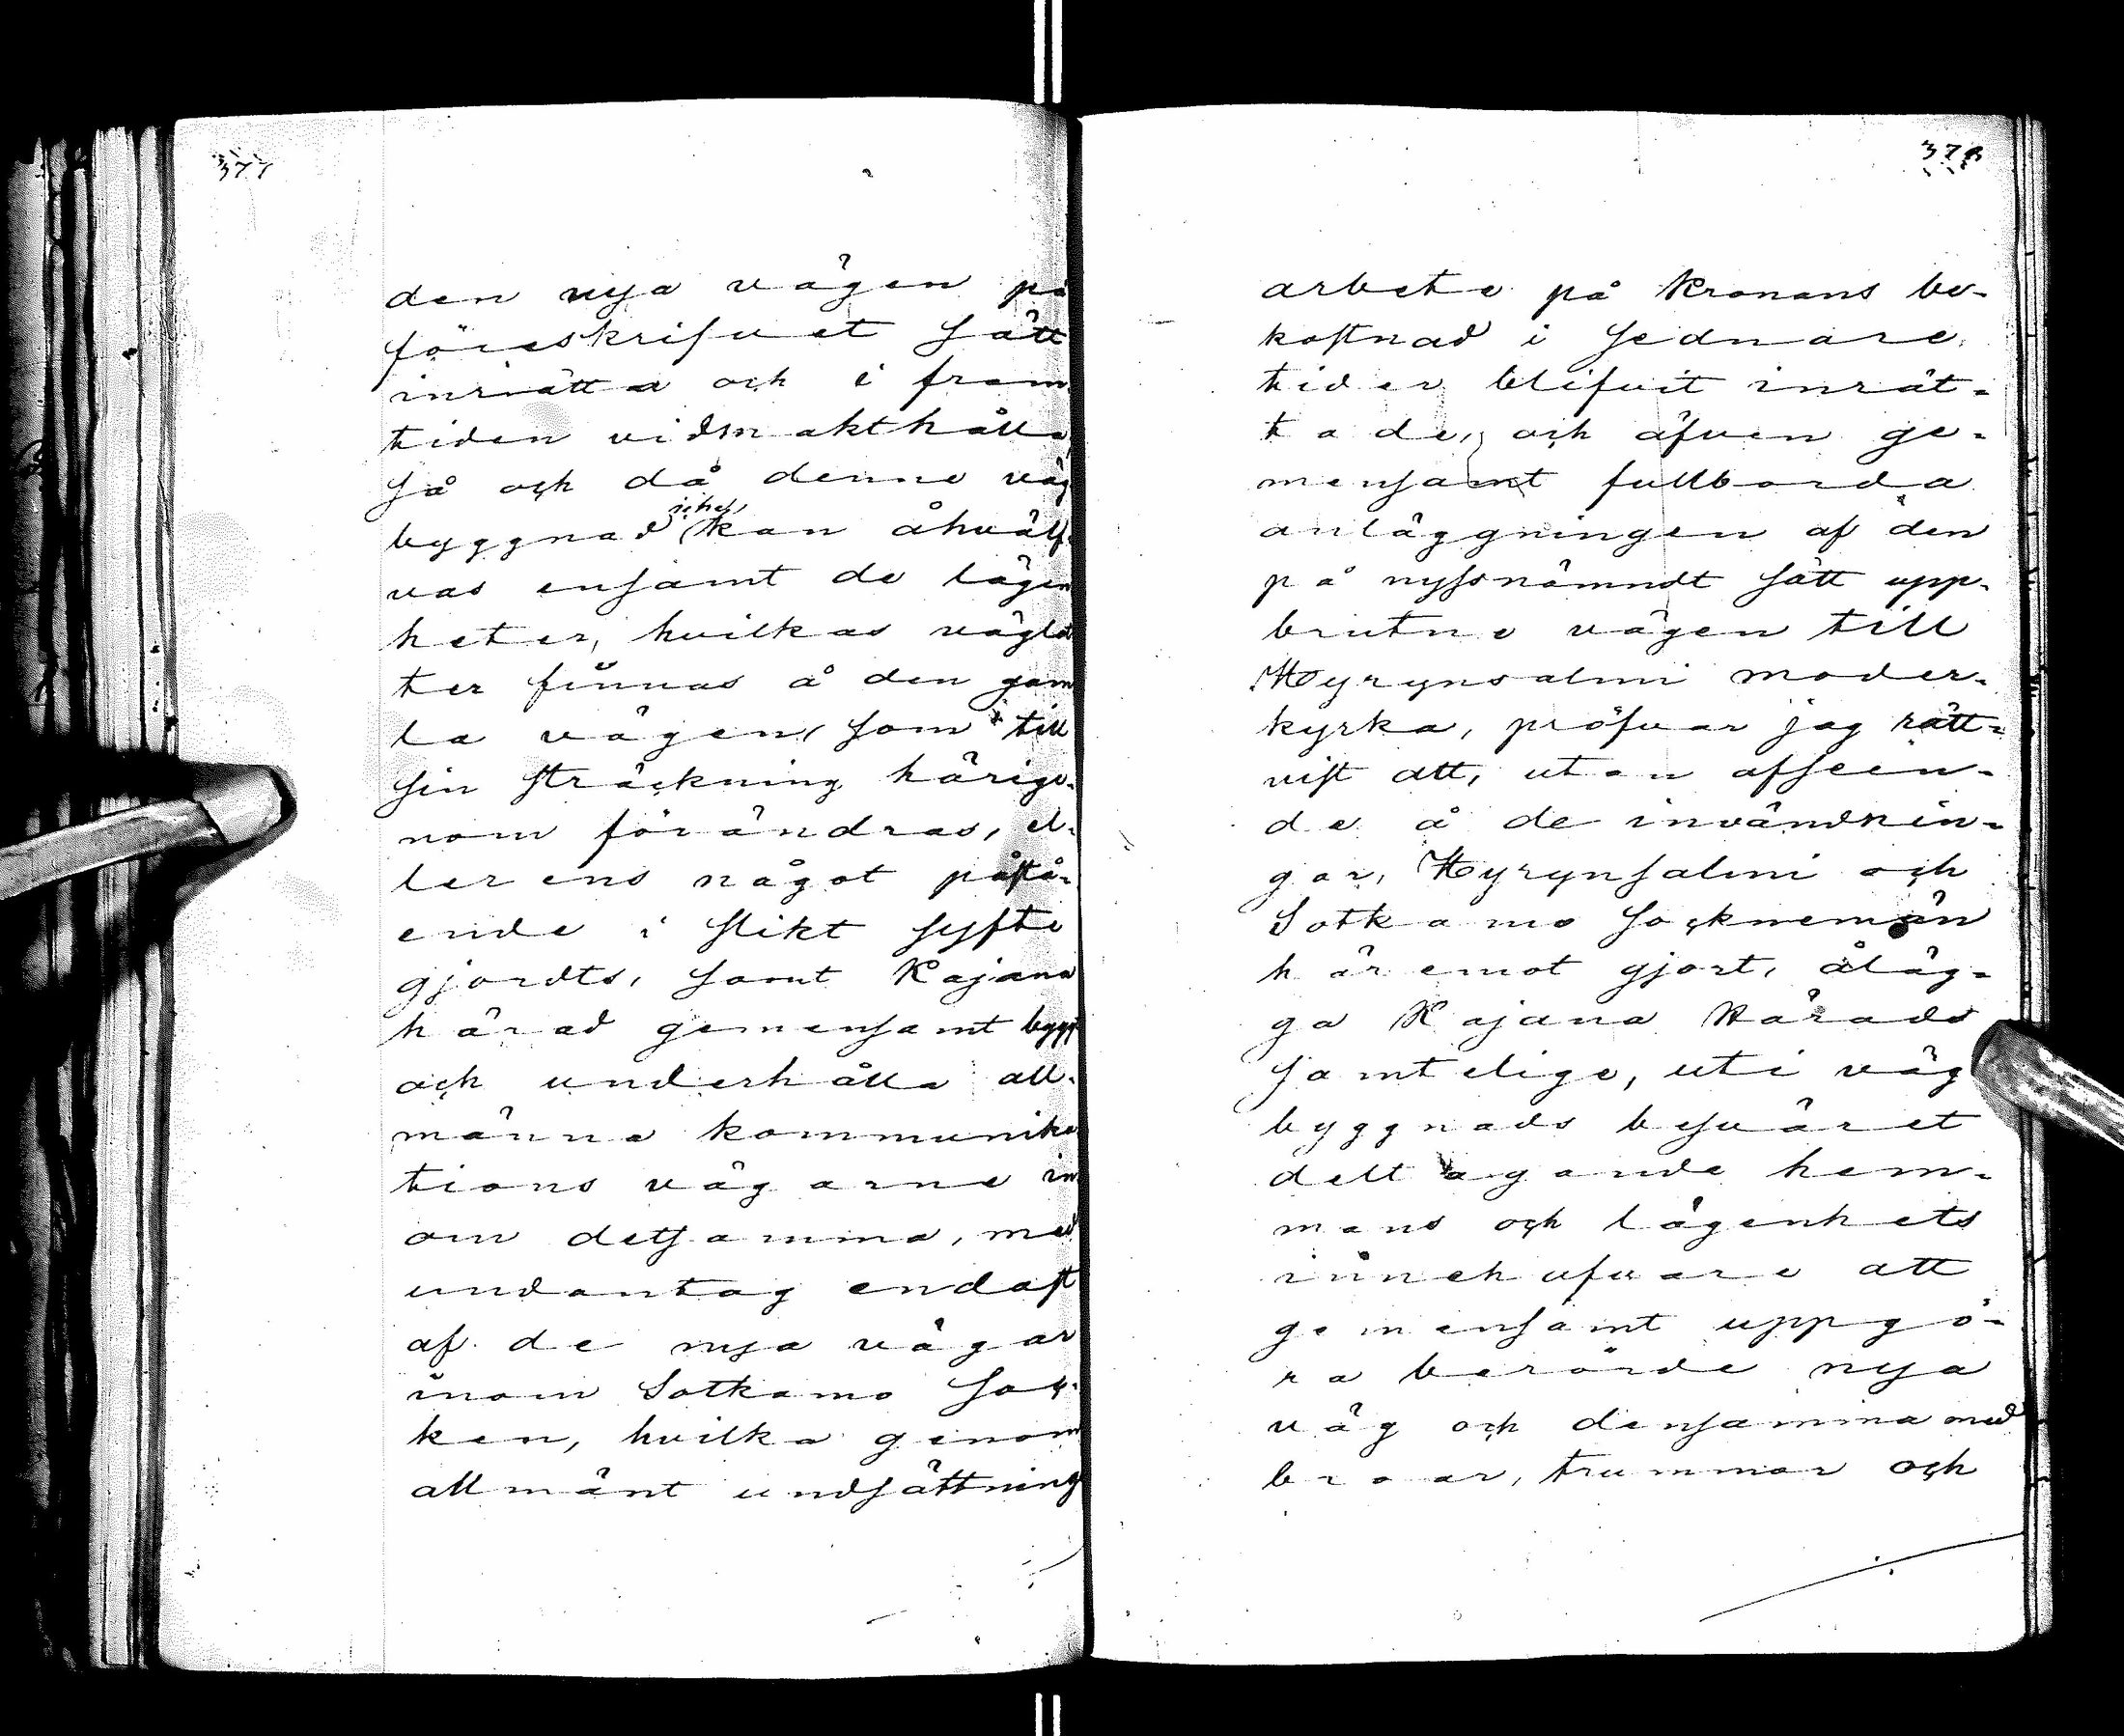 377
den nya vägen på
föreskrifvet sätt
inrätta och i fram
tiden vidmakthålla,
så och då denne väg
byggnad icke kan åhvälf
vas ensamt de lägen
heter, hvilkas väglot
ter finnas å den gam
la vägen, som till
sin sträckning härige-
nom förändras, el-
ler ens något påstå-
ende i slikt syfte
gjordts, samt Kajana
härad gemensamt byggt
och underhålla all-
männa kommunika
tions vägarne in
om detsamma, med
undantag endast
af de nya vägar
inom Sotkamo soc-
ken, hvilka genom
allmänt undsättning
378
arbete på Kronans be-
kostnad i sednare
tider blifvit inrät-
tade, och äfven ge-
mensamt fullborda
anläggningen af den
på nyssnämndt sätt upp-
brutne vägen till
Hyrynsalmi moder-
kyrka, pröfvar jag rätt-
vist att, utan afseen-
de å de invändnin-
gar, Hyrynsalmi och
Sotkamo socknemän
häremot gjort, åläg-
ga Kajana Härads
samtelige, uti väg
byggnads besväret
delltagande hem-
mans och lägenhets
innehafvare att
gemensamt uppgö-
ra berörde nya
väg och densamma med
broar, trummor och